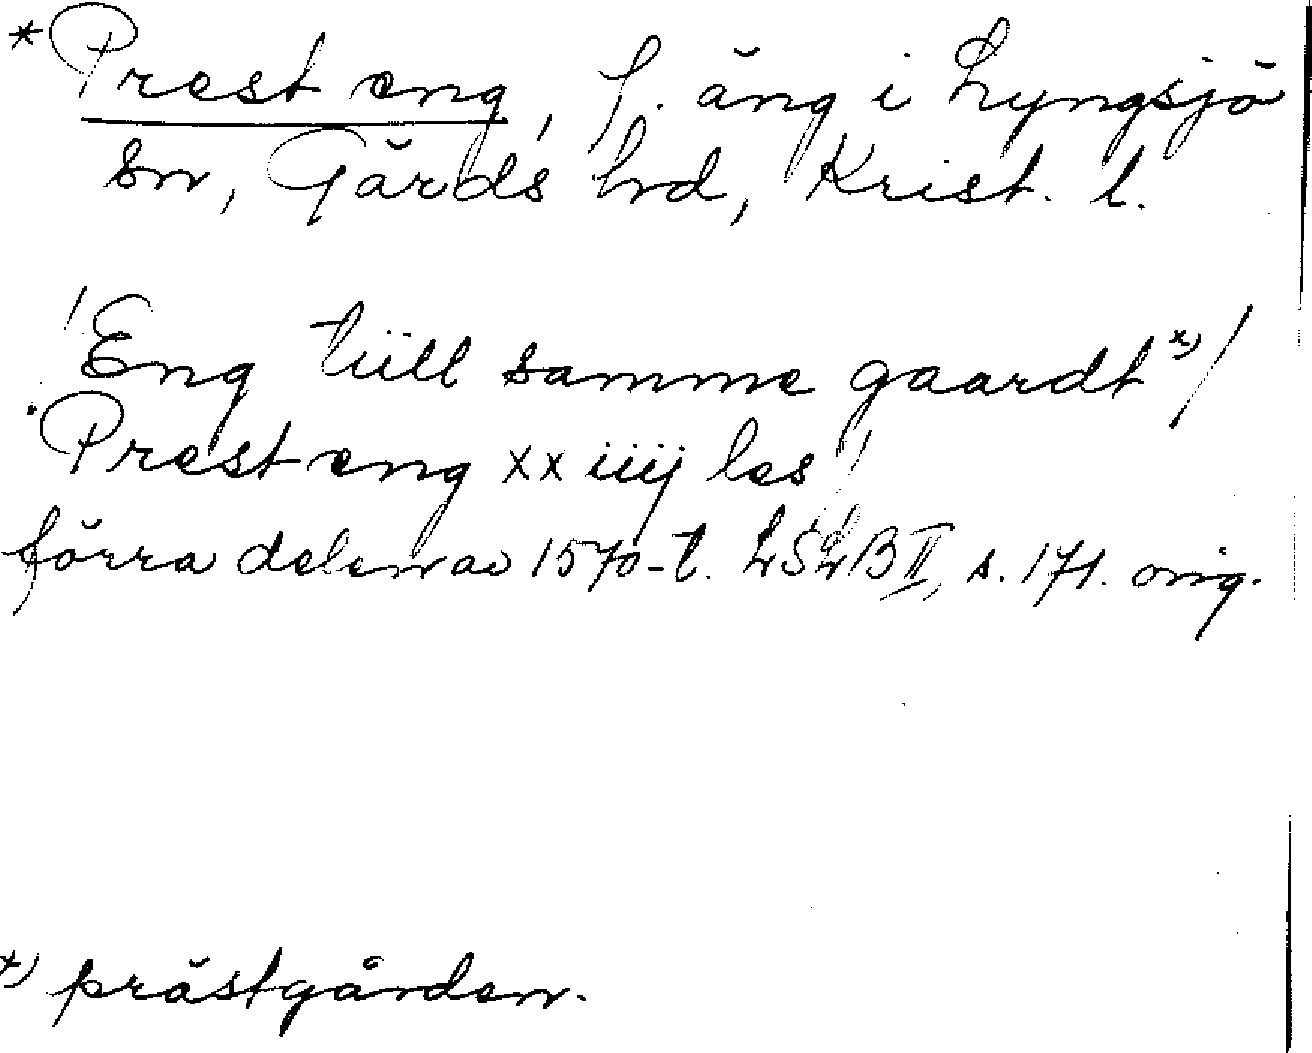 * Prest eng, f. äng i Lyngsjö
sn, Gärds hrd, Krist. l.
/Eng tiill samme gaardt x)/
Prest eng xx iiij les
förra delen av 1570-t. LSLB II, s. 171. orig.
x) prästgården.